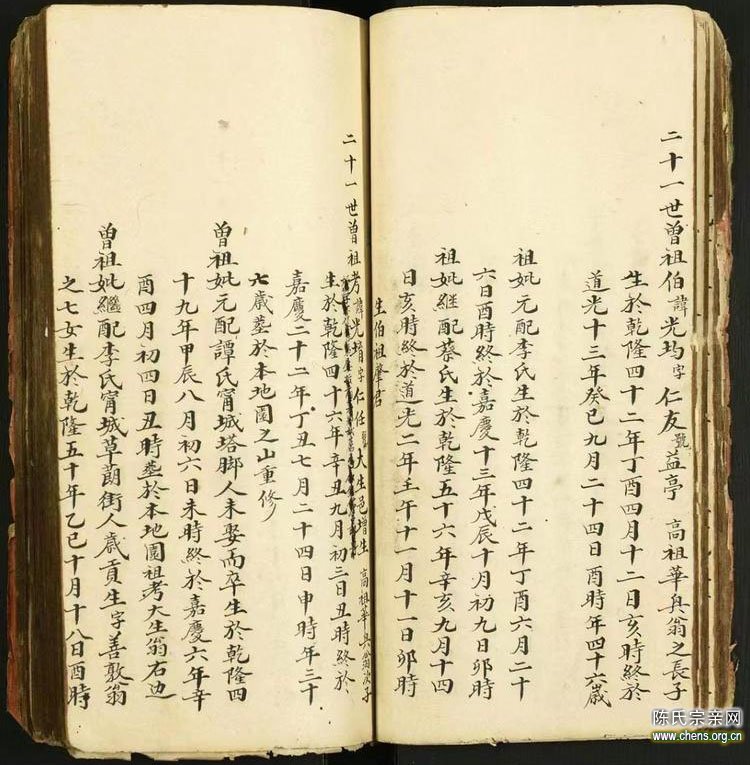 二十一世曾祖伯諱光均字仁友號益亭 高祖華兵翁之長子
生於乾隆四十二年丁酉四月十二日亥時終於
道光十三年癸巳九月二十四日酉時年四十六歲
祖妣元配李氏生於乾隆四十二年丁酉六月二十
六日酉時終於嘉慶十三年戊辰十月初九日卯時
祖妣継配蔡氏生於乾隆五十六年辛亥九月十四
日亥時終於道光二年壬午十一月十一日卯時
生伯祖肇君
二十一世曾祖考諱光堉字仁任號大生邑增生 高祖華兵翁次子
生於乾隆四十六年辛丑九月初三日丑時終於
嘉慶二十二年丁丑七月二十四日申時年三十
七歲墓於本地園之山重修
曾祖妣元配譚氏甯城塔脚人未娶而卒生於乾隆四
十九年甲辰八月初六日未時終於嘉慶六年辛
酉四月初四日丑時塟於本地園祖考大生翁右边
曾祖妣繼配李氏甯城草蓢街人歲貢生字善敦翁
之七女生於乾隆五十年乙巳十月十八日酉時
陈氏宗亲网
www.chens.org.cn